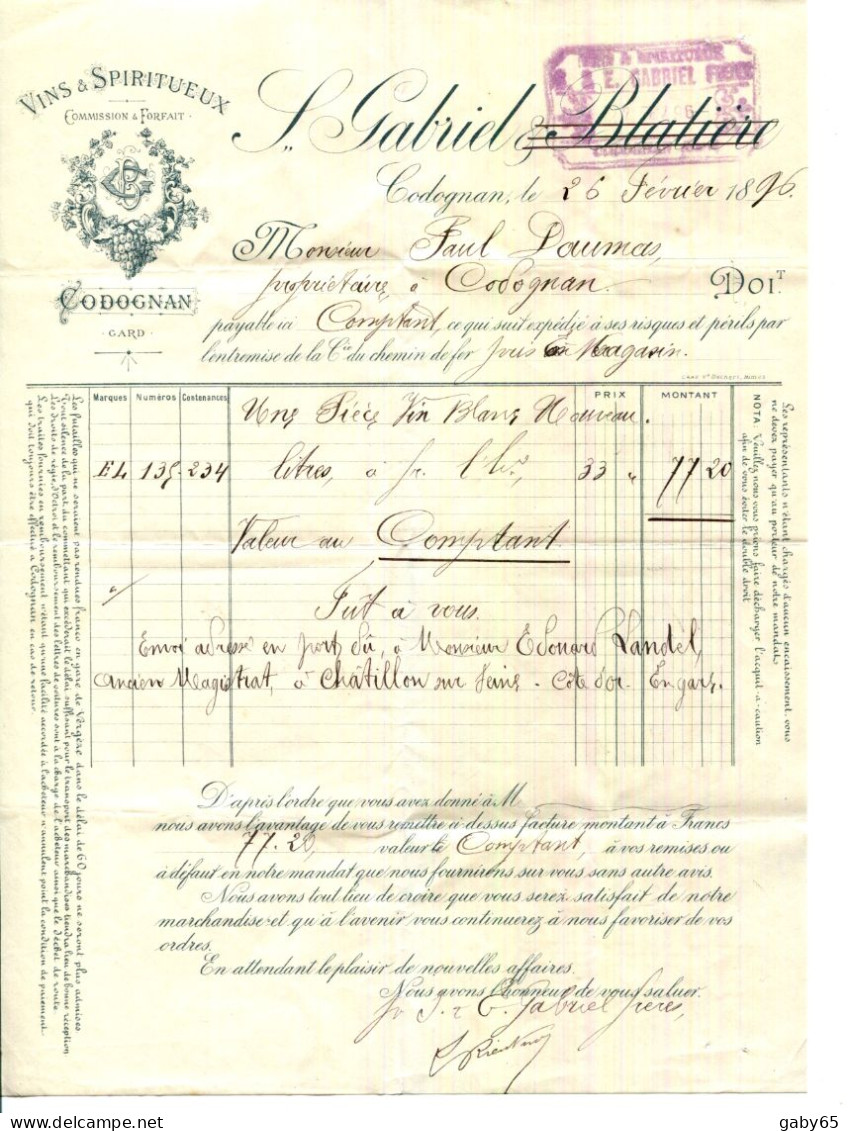 VINS & SPIRITUEUX
COMMISSION & FORFAIT
CODOGNAN
GARD
VINS & SPIRITUEUX
E. GABRIEL FRÈRES
S. Gabriel & Blatière
Codognan, le 26 Février 1896.
Monsieur Paul Daumas,
propriétaire, à Codognan. DOIT
payable ici Comptant, ce qui suit expédié à ses risques et périls par
l'entremise de la Cie du chemin de fer pris En Magasin.
Marques Numéros Contenances PRIX MONTANT
Une Pièce Vin Blanc Nouveau.
EL 135 234 litres, à fr. l'h., 33 " 77 20
Valeur au Comptant
Fût à vous.
Envoi adressé en port dû, à Monsieur Edouard Landel,
Ancien Magistrat, à Châtillon sur Seine - Côte d'or. En gare.
Les futailles qui ne seraient pas rendues franco en gare de Vergèze dans le délai de 60 jours ne seront plus admises
Tout silence de la part du commettant qui excéderait le délai suffisant pour le transport des marchandises tiendra lieu de bonne réception
Les droits de régie, d'Octroi et le remboursement des lettres de voitures sont à la charge de l'acheteur ainsi que le déchet de route.
Les traites fournies en remboursement n'étant qu'une facilité accordée à l'acheteur n'annulent point la condition de paiement
qui doit toujours être effectué à Codognan en cas de retour.
Les représentants n'étant chargés d'aucun encaissement vous
ne devez payer qu'au porteur de notre mandat.
NOTA. Veuillez nous vous prions faire décharger l'acquit-à-caution
afin de vous éviter le double droit
D'après l'ordre que vous avez donné à M
nous avons l'avantage de vous remettre ci-dessus facture montant à Francs
77.20, valeur le Comptant, à vos remises ou
à défaut en notre mandat que nous fournirons sur vous sans autre avis.
Nous avons tout lieu de croire que vous serez satisfait de notre
marchandise et qu'à l'avenir vous continuerez à nous favoriser de vos
ordres.
En attendant le plaisir de nouvelles affaires.
Nous avons l'honneur de vous saluer.
pr S. & E. Gabriel frères,
gaby65